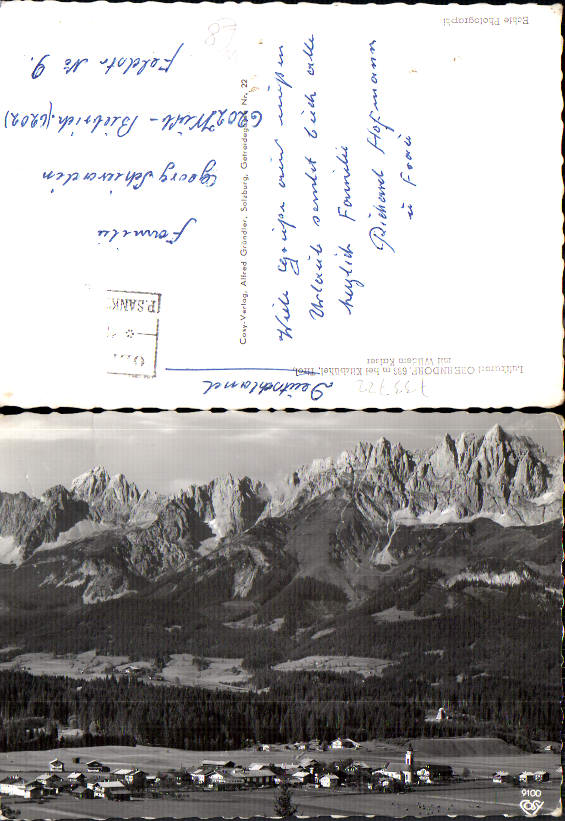 Luftkurort OBERNDORF, 685 m bei Kitzbühel, Tirol
mit Wildem Kaiser
Echte Photographi
Cosy-Verlag, Alfred Gründler, Salzburg, Getreidegasse Nr. 22
Viele Grüße aus unserem
Urlaub sendet Euch alle
herzlich Familie
Richard Hofmann
u Frau
P. SANK
Familie
Georg
6202 Wiesb - Biebrich (6202)
Feldstr No 9.
Deutschland
733722
9100
COSY